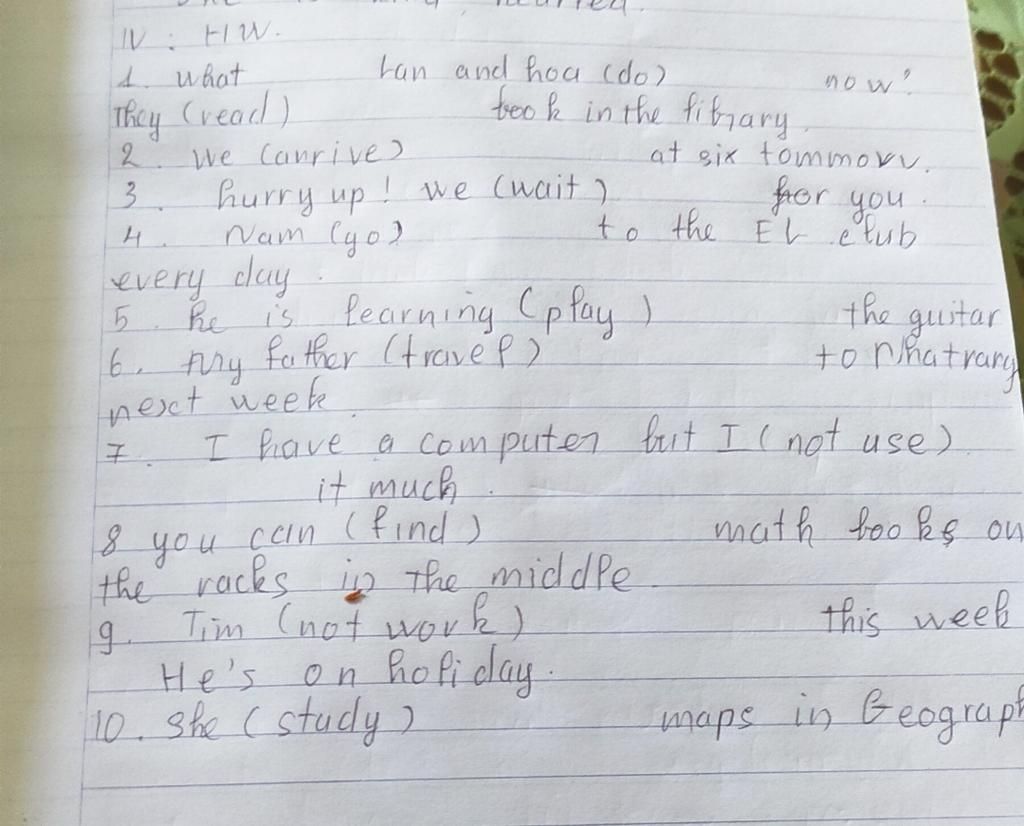 IV : HW.
1. what Lan and hoa (do) now?
They (read) book in the library.
2. We (anrive) at six tommorv.
3. hurry up! we (wait) for you.
4. Nam (go) to the EL club
every day.
5. he is learning (play) the guitar
6. My father (travel) to Nhatrang
next week.
7. I have a computer but I (not use)
it much.
8 you can (find) math books on
the racks in the middle.
9. Tim (not work) this week
He's on holiday.
10. She (study) maps in Geograph